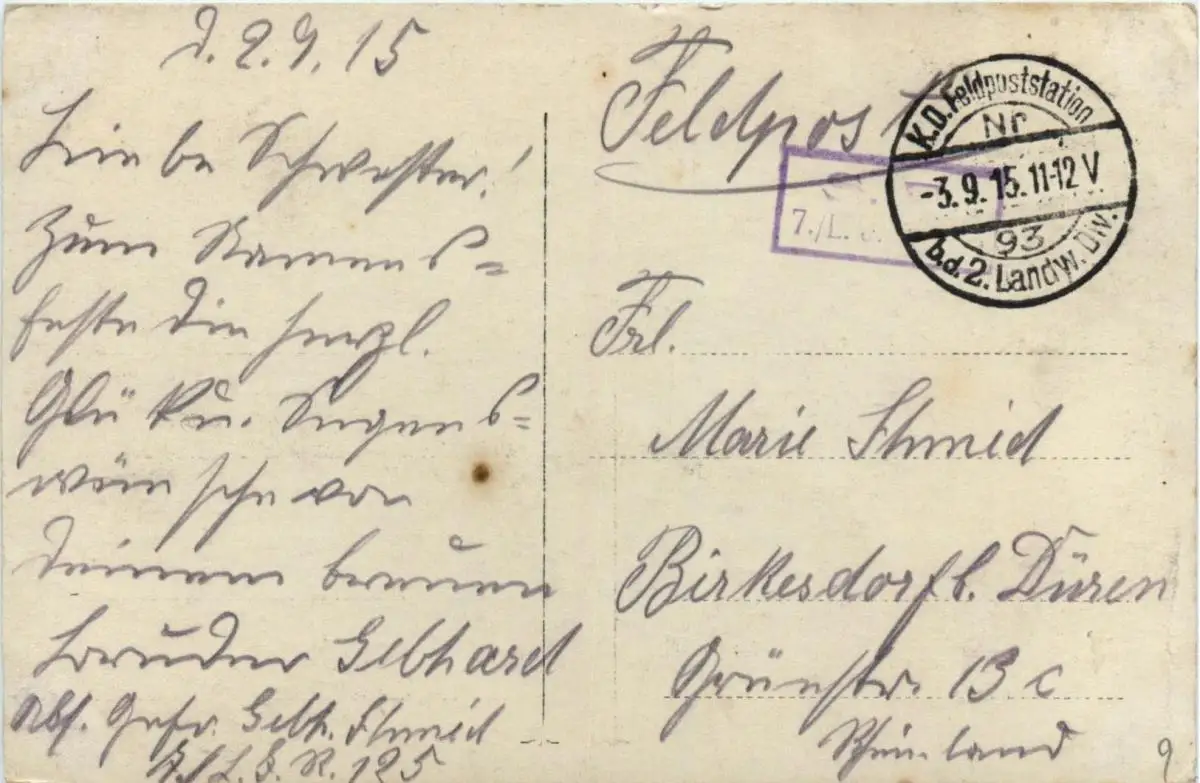 d. 2.9.15
Liebe Schwester!
Zum Namens=
feste die herzl.
Glück u. Segens=
wünsche von
Deinem
Bruder Gebhard
Abs. Gefr. Gebh. Schmid
L. I. R. 125
Feldpost
K.D. Feldpoststation
Nr
-3.9.15.11-12 V
93
b.d. 2. Landw. Div.
7./L.
Frl.
Marie Schmid
Birkesdorf b. Düren
Grünstr. 13 c
Rheinland
9